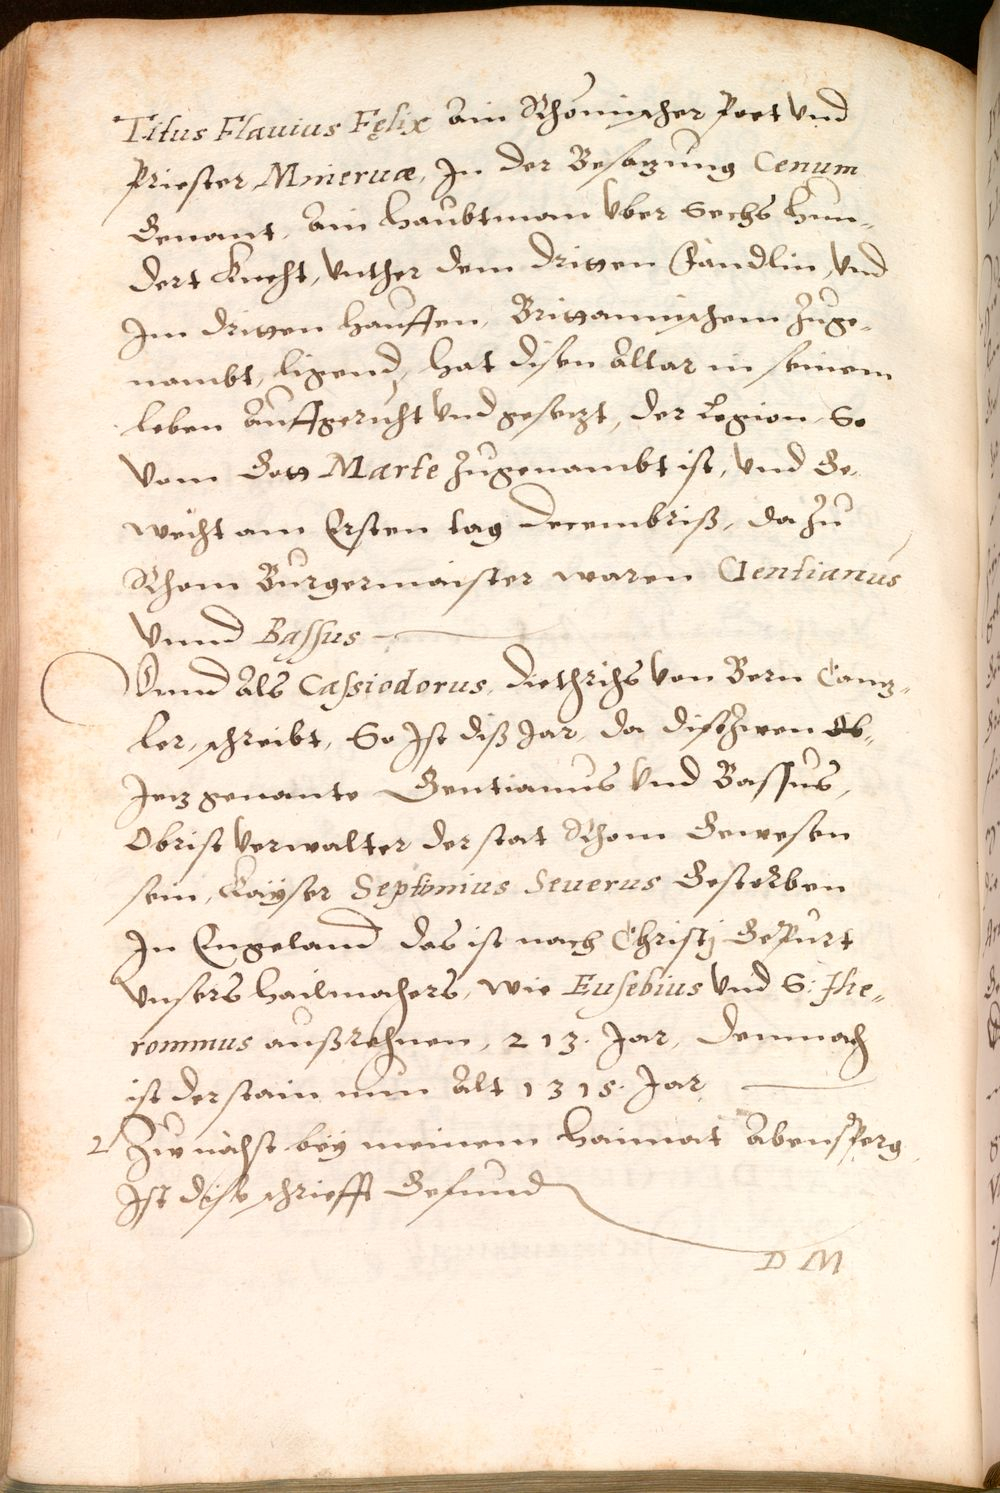 Titus Flauius Felix ain Rhömischer Poet vnd
Priester Mineruæ, In der Besatzung Cenum
Genant, ain haubtman vber Sechs hun-
dert Knecht, vnther dem dritten Fändlin, vnd
Im dritten hauffen, Brittannischem Zuge-
nambt, ligend, hat disen Altar in seinem
leben auffgericht vnd gesetzt, der Legion, So
vom Gott Marte Zugenambt ist, vnd Ge-
weicht am Ersten tag decembriß, da Zu
Rhom Burgermaister waren Gentianus
vnnd Bassus
Vnnd als Cassiodorus, diethrichs von Bern Cantz-
ler, schreibt, So Ist diß Jar, da dise Zwen Ob-
Jetz genante Gentianus vnd Bassus,
Obrist verwalter der stat Rhom Gewesen
sein, Kayser Septimius Seuerus Gestorben
In Engeland das ist nach Christj Gepurt
vnsers hailmachers, wie Eusebius vnd S: Jhe-
ronimus außrechnen, 213. Jar, demnach
ist der stain nun alt 1315. Jar
2 Zw nächst bey meinem haimat Abensperg
Ist dise schriefft Gefund
D M